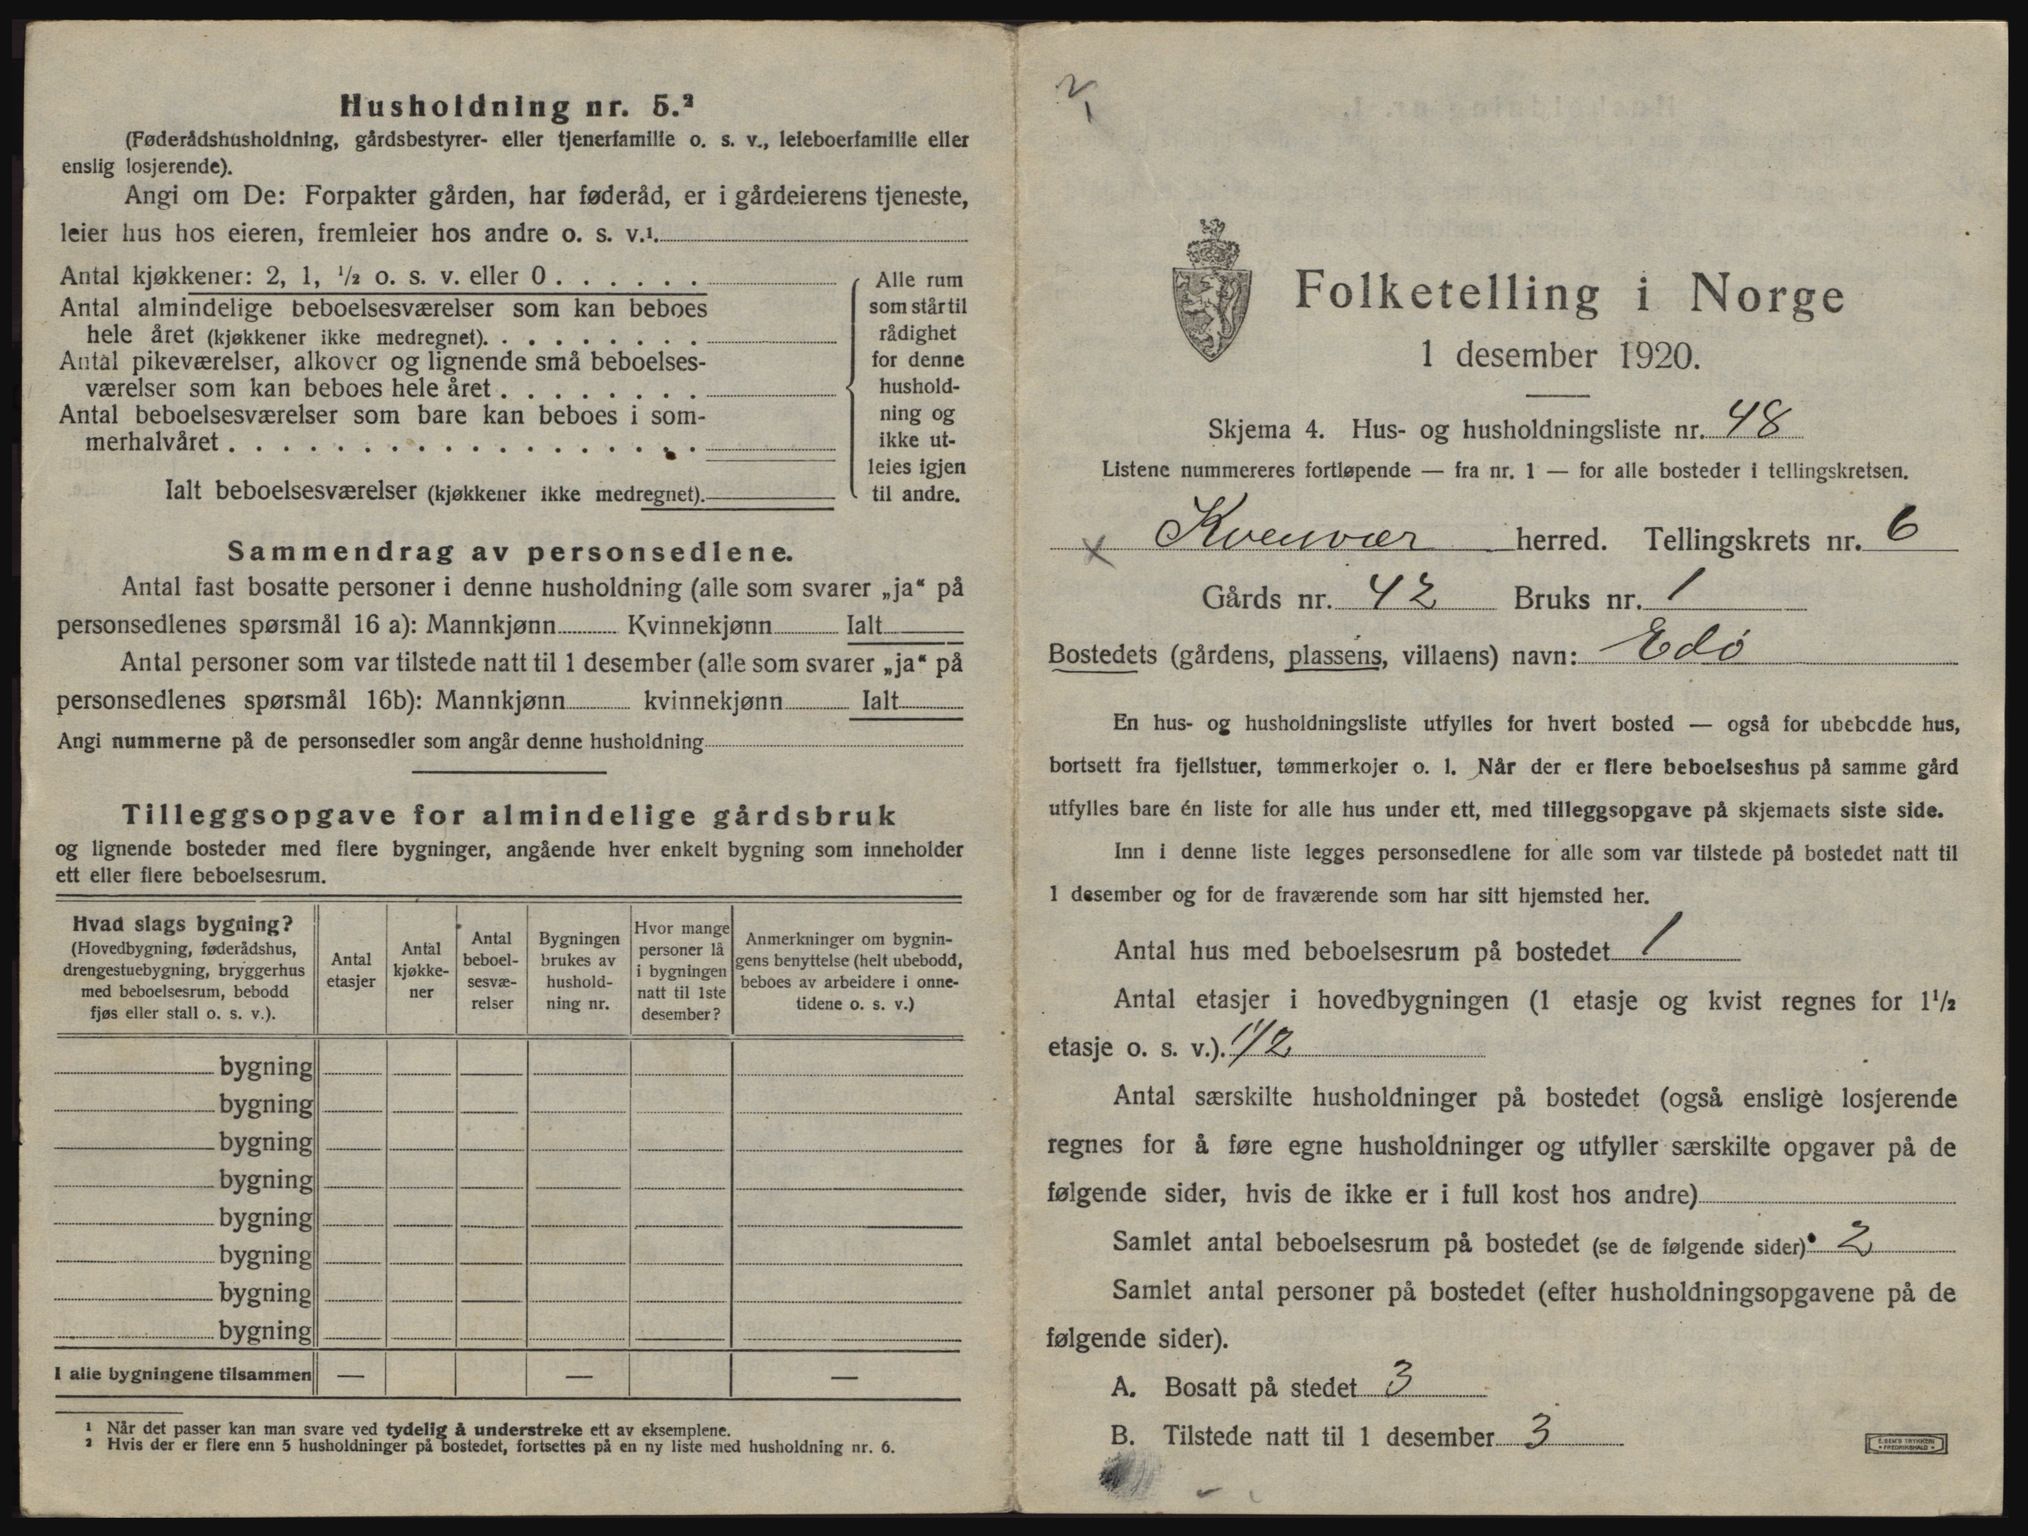 Husholdning nr. 5.²
(Føderådshusholdning, gårdsbestyrer- eller tjenerfamilie o. s. v., leieboerfamilie eller
enslig losjerende).
Angi om De: Forpakter gården, har føderåd, er i gårdeierens tjeneste,
leier hus hos eieren, fremleier hos andre o. s. v.¹.
Antal kjøkkener: 2, 1, ¹/₂ o. s. v. eller 0 . . . . . .
Antal almindelige beboelsesværelser som kan beboes
hele året (kjøkkener ikke medregnet). . . . . . . . .
Antal pikeværelser, alkover og lignende små beboelses-
værelser som kan beboes hele året . . . . . . . .
Antal beboelsesværelser som bare kan beboes i som-
merhalvåret . . . . . . . . . . . . . . . . . .
Ialt beboelsesværelser (kjøkkener ikke medregnet).
Alle rum
som står til
rådighet
for denne
hushold-
ning og
ikke ut-
leies igjen
til andre.
Sammendrag av personsedlene.
Antal fast bosatte personer i denne husholdning (alle som svarer „ja“ på
personsedlenes spørsmål 16 a): Mannkjønn Kvinnekjønn Ialt
Antal personer som var tilstede natt til 1 desember (alle som svarer „ja“ på
personsedlenes spørsmål 16b): Mannkjønn kvinnekjønn Ialt
Angi nummerne på de personsedler som angår denne husholdning
Tilleggsopgave for almindelige gårdsbruk
og lignende bosteder med flere bygninger, angående hver enkelt bygning som inneholder
ett eller flere beboelsesrum.
Hvad slags bygning?
(Hovedbygning, føderådshus,
drengestuebygning, bryggerhus
med beboelsesrum, bebodd
fjøs eller stall o. s. v.).
Antal
etasjer
Antal
kjøkke-
ner
Antal
beboel-
sesvæ-
relser
Bygningen
brukes av
hushold-
ning nr.
Hvor mange
personer lå
i bygningen
natt til 1ste
desember?
Anmerkninger om bygnin-
gens benyttelse (helt ubebodd,
beboes av arbeidere i onne-
tidene o. s. v.)
bygning
bygning
bygning
bygning
bygning
bygning
bygning
bygning
I alle bygningene tilsammen — — —
¹ Når det passer kan man svare ved tydelig å understreke ett av eksemplene.
² Hvis der er flere enn 5 husholdninger på bostedet, fortsettes på en ny liste med husholdning nr. 6.
Folketelling i Norge
1 desember 1920.
Skjema 4. Hus- og husholdningsliste nr. 48
Listene nummereres fortløpende — fra nr. 1 — for alle bosteder i tellingskretsen.
x Kvenvær herred. Tellingskrets nr. 6
Gårds nr. 42 Bruks nr. 1
Bostedets (gårdens, plassens, villaens) navn: Edø
En hus- og husholdningsliste utfylles for hvert bosted — også for ubebodde hus,
bortsett fra fjellstuer, tømmerkojer o. l. Når der er flere beboelseshus på samme gård
utfylles bare én liste for alle hus under ett, med tilleggsopgave på skjemaets siste side.
Inn i denne liste legges personsedlene for alle som var tilstede på bostedet natt til
1 desember og for de fraværende som har sitt hjemsted her.
Antal hus med beboelsesrum på bostedet 1
Antal etasjer i hovedbygningen (1 etasje og kvist regnes for 1¹/₂
etasje o. s. v.). 1 1/2
Antal særskilte husholdninger på bostedet (også enslige losjerende
regnes for å føre egne husholdninger og utfyller særskilte opgaver på de
følgende sider, hvis de ikke er i full kost hos andre)
Samlet antal beboelsesrum på bostedet (se de følgende sider) 2
Samlet antal personer på bostedet (efter husholdningsopgavene på de
følgende sider).
A. Bosatt på stedet 3
B. Tilstede natt til 1 desember 3
E. SEM'S TRYKKERI
• FREDRIKSHALD •